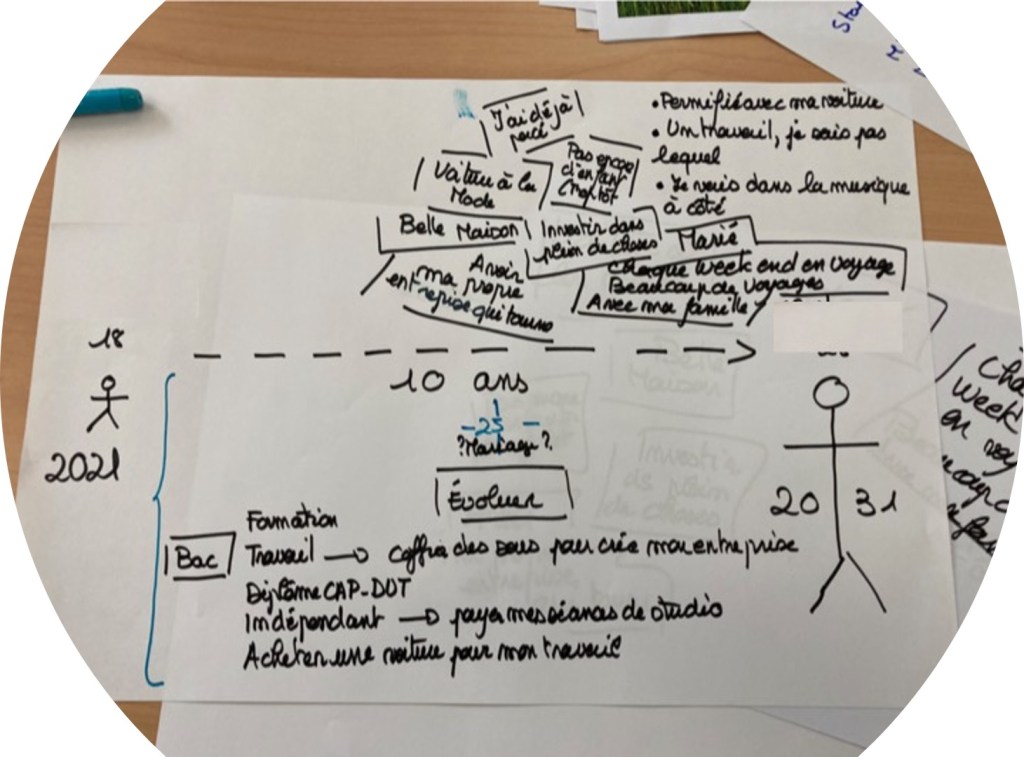 J'ai déjà
percé
• Permifié avec ma voiture
• Un travail, je sais pas
lequel
• Je vais dans la musique
à côté
Voiture à la
Mode
Pas encore
d'enfant
(trop tôt
Belle Maison
Investir dans
plein de choses
Marié
Avoir
ma propre
entreprise qui tourne
Chaque week end en voyage
Beaucoup de voyages
Avec ma famille
18
10 ans
2021
- 25 -
?Mariage?
Évoluer
20 31
Bac
Formation
Travail → coffrer des sous pour crée mon entreprise
Diplôme CAP-DUT
Indépendant → payer mes séances de studio
Acheter une voiture pour mon travail
Cha
week
en voy